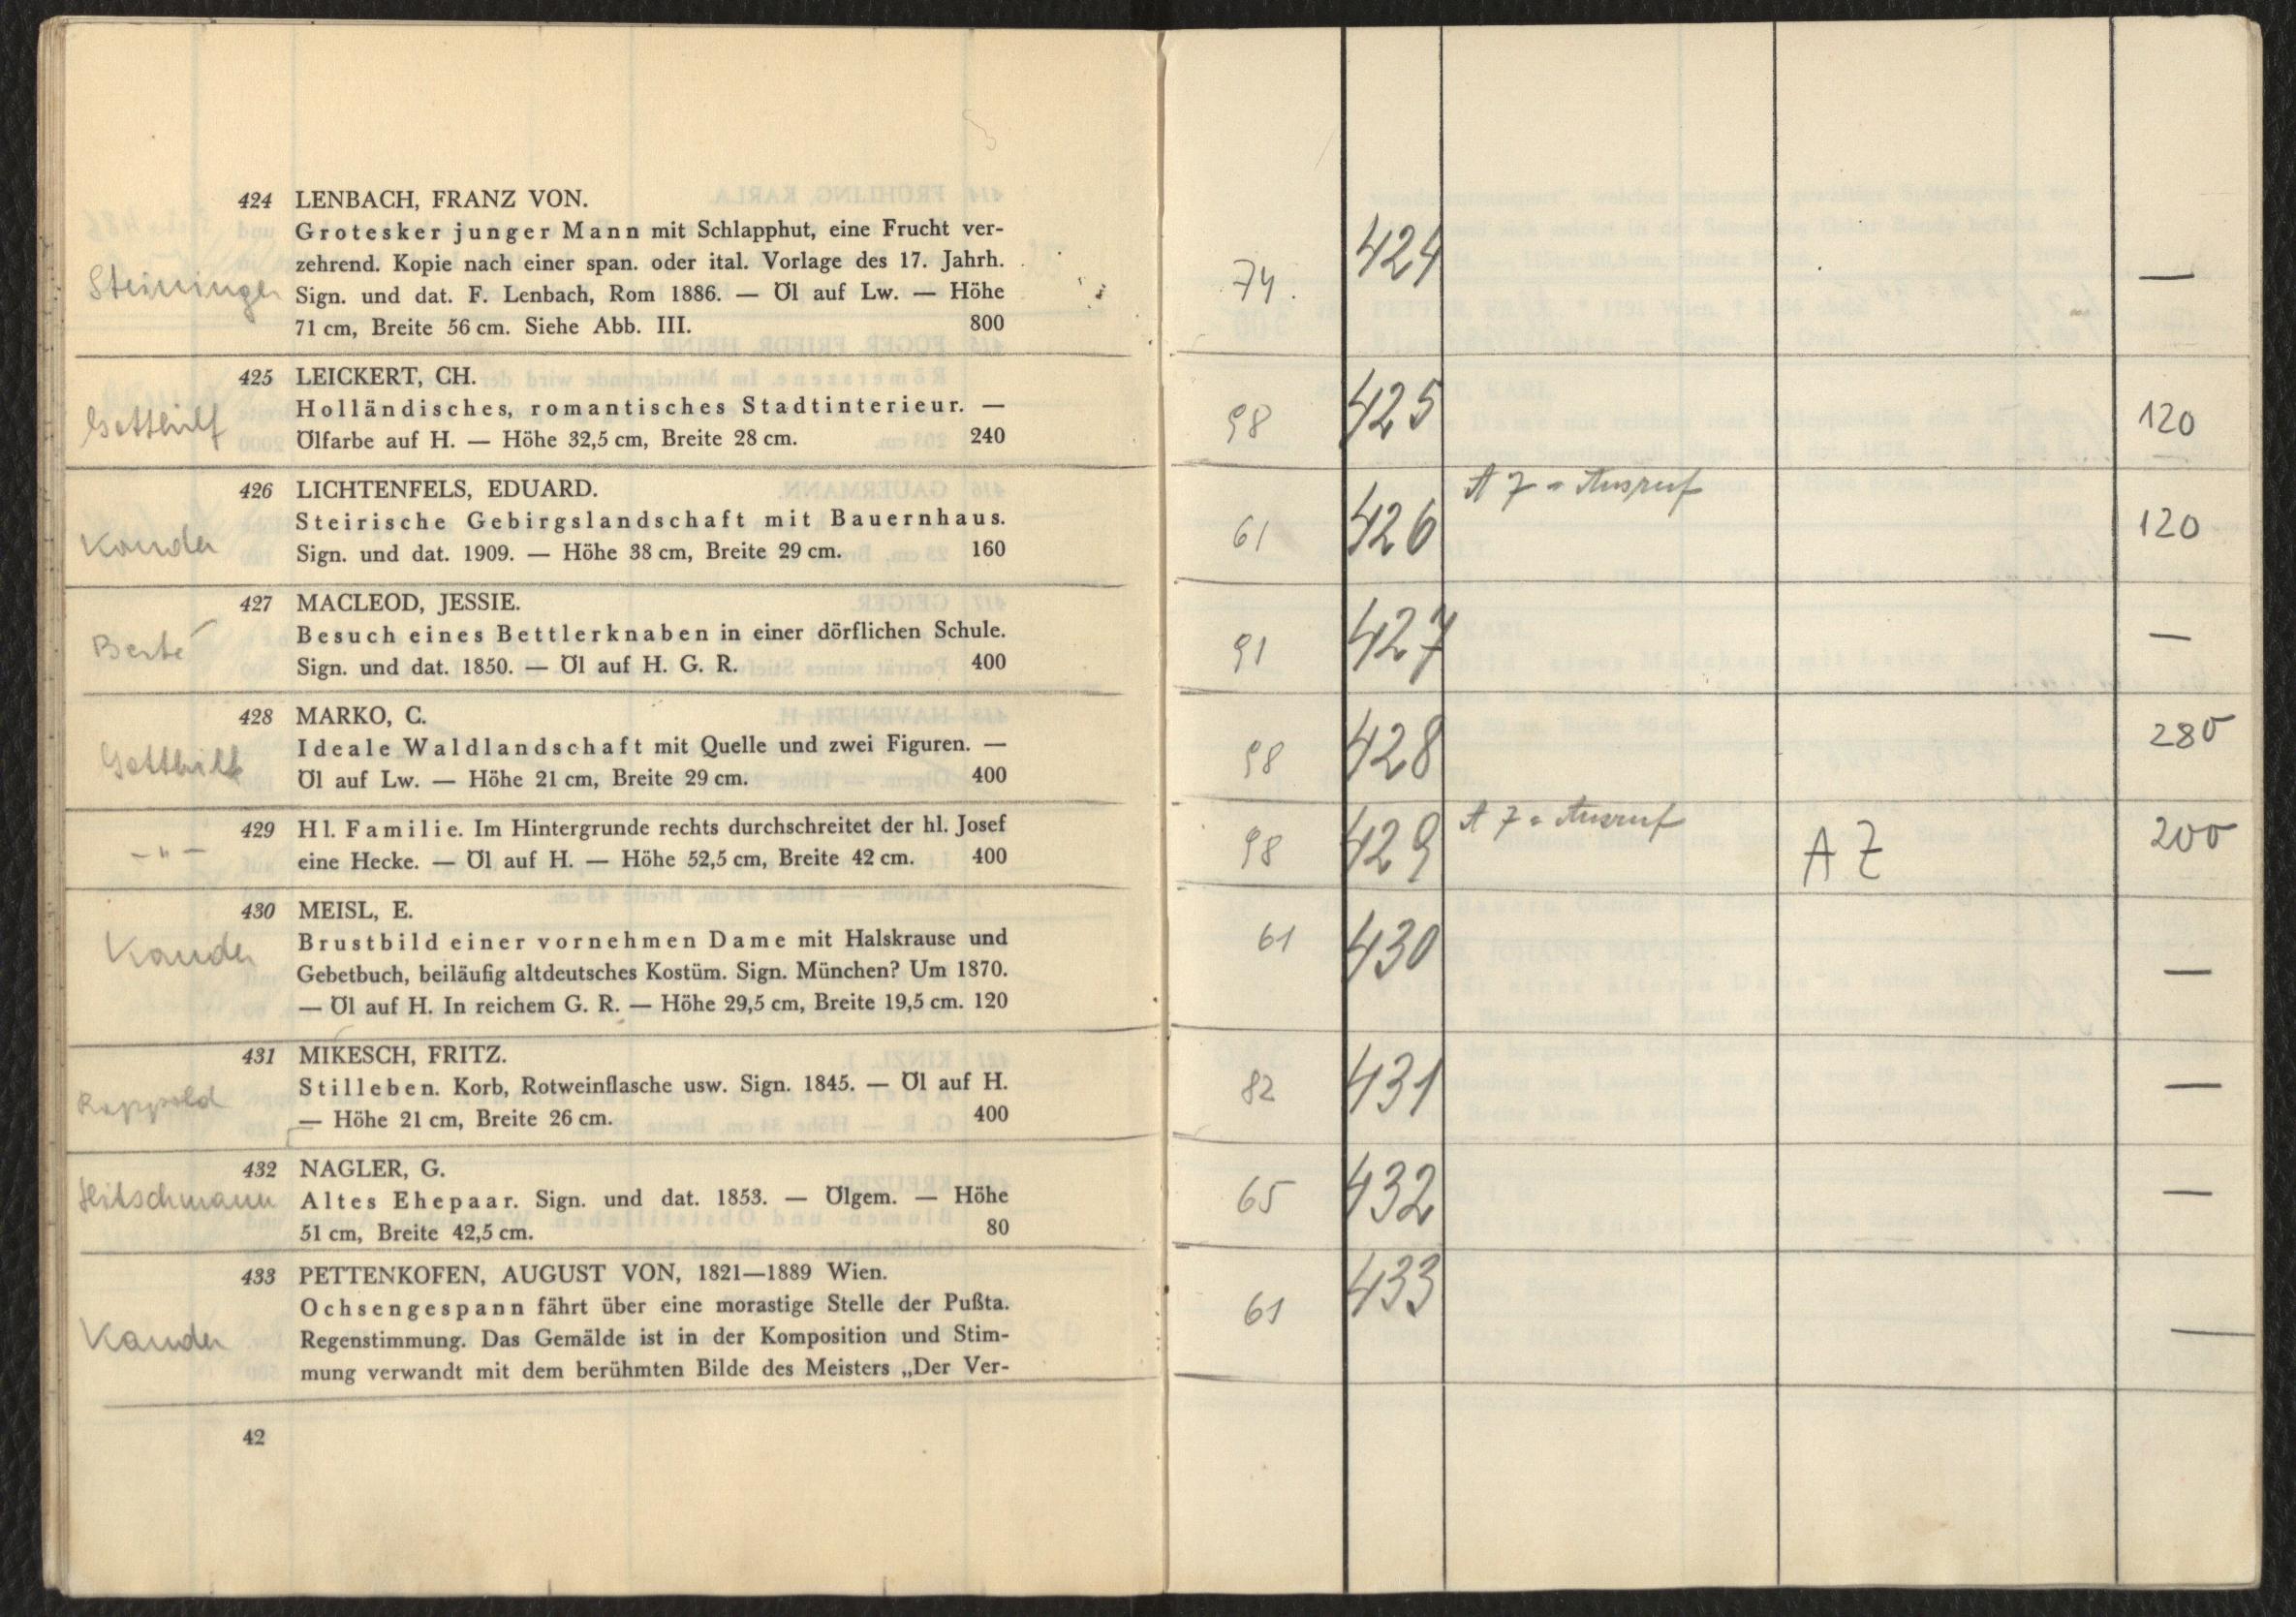 424 LENBACH, FRANZ VON.
Grotesker junger Mann mit Schlapphut, eine Frucht ver-
zehrend. Kopie nach einer span. oder ital. Vorlage des 17. Jahrh.
Steininger Sign. und dat. F. Lenbach, Rom 1886. — Öl auf Lw. — Höhe
71 cm, Breite 56 cm. Siehe Abb. III. 800
425 LEICKERT, CH.
Gotthilf Holländisches, romantisches Stadtinterieur. —
Ölfarbe auf H. — Höhe 32,5 cm, Breite 28 cm. 240
426 LICHTENFELS, EDUARD.
Steirische Gebirgslandschaft mit Bauernhaus.
Kander Sign. und dat. 1909. — Höhe 38 cm, Breite 29 cm. 160
427 MACLEOD, JESSIE.
Berté Besuch eines Bettlerknaben in einer dörflichen Schule.
Sign. und dat. 1850. — Öl auf H. G. R. 400
428 MARKO, C.
Gotthilf Ideale Waldlandschaft mit Quelle und zwei Figuren. —
Öl auf Lw. — Höhe 21 cm, Breite 29 cm. 400
429 Hl. Familie. Im Hintergrunde rechts durchschreitet der hl. Josef
— " — eine Hecke. — Öl auf H. — Höhe 52,5 cm, Breite 42 cm. 400
430 MEISL, E.
Kander Brustbild einer vornehmen Dame mit Halskrause und
Gebetbuch, beiläufig altdeutsches Kostüm. Sign. München? Um 1870.
— Öl auf H. In reichem G. R. — Höhe 29,5 cm, Breite 19,5 cm. 120
431 MIKESCH, FRITZ.
Rappold Stilleben. Korb, Rotweinflasche usw. Sign. 1845. — Öl auf H.
— Höhe 21 cm, Breite 26 cm. 400
432 NAGLER, G.
Hitschmann Altes Ehepaar. Sign. und dat. 1853. — Ölgem. — Höhe
51 cm, Breite 42,5 cm. 80
433 PETTENKOFEN, AUGUST VON, 1821—1889 Wien.
Ochsengespann fährt über eine morastige Stelle der Pußta.
Kander Regenstimmung. Das Gemälde ist in der Komposition und Stim-
mung verwandt mit dem berühmten Bilde des Meisters „Der Ver-
42
74. 424 —
98 425 120
A 7 = Ausruf
61 426 120
91 427 —
98 428 280
A 7 = Ausruf
98 429 A Z 200
61 430 —
82 431 —
65 432 —
61 433 —